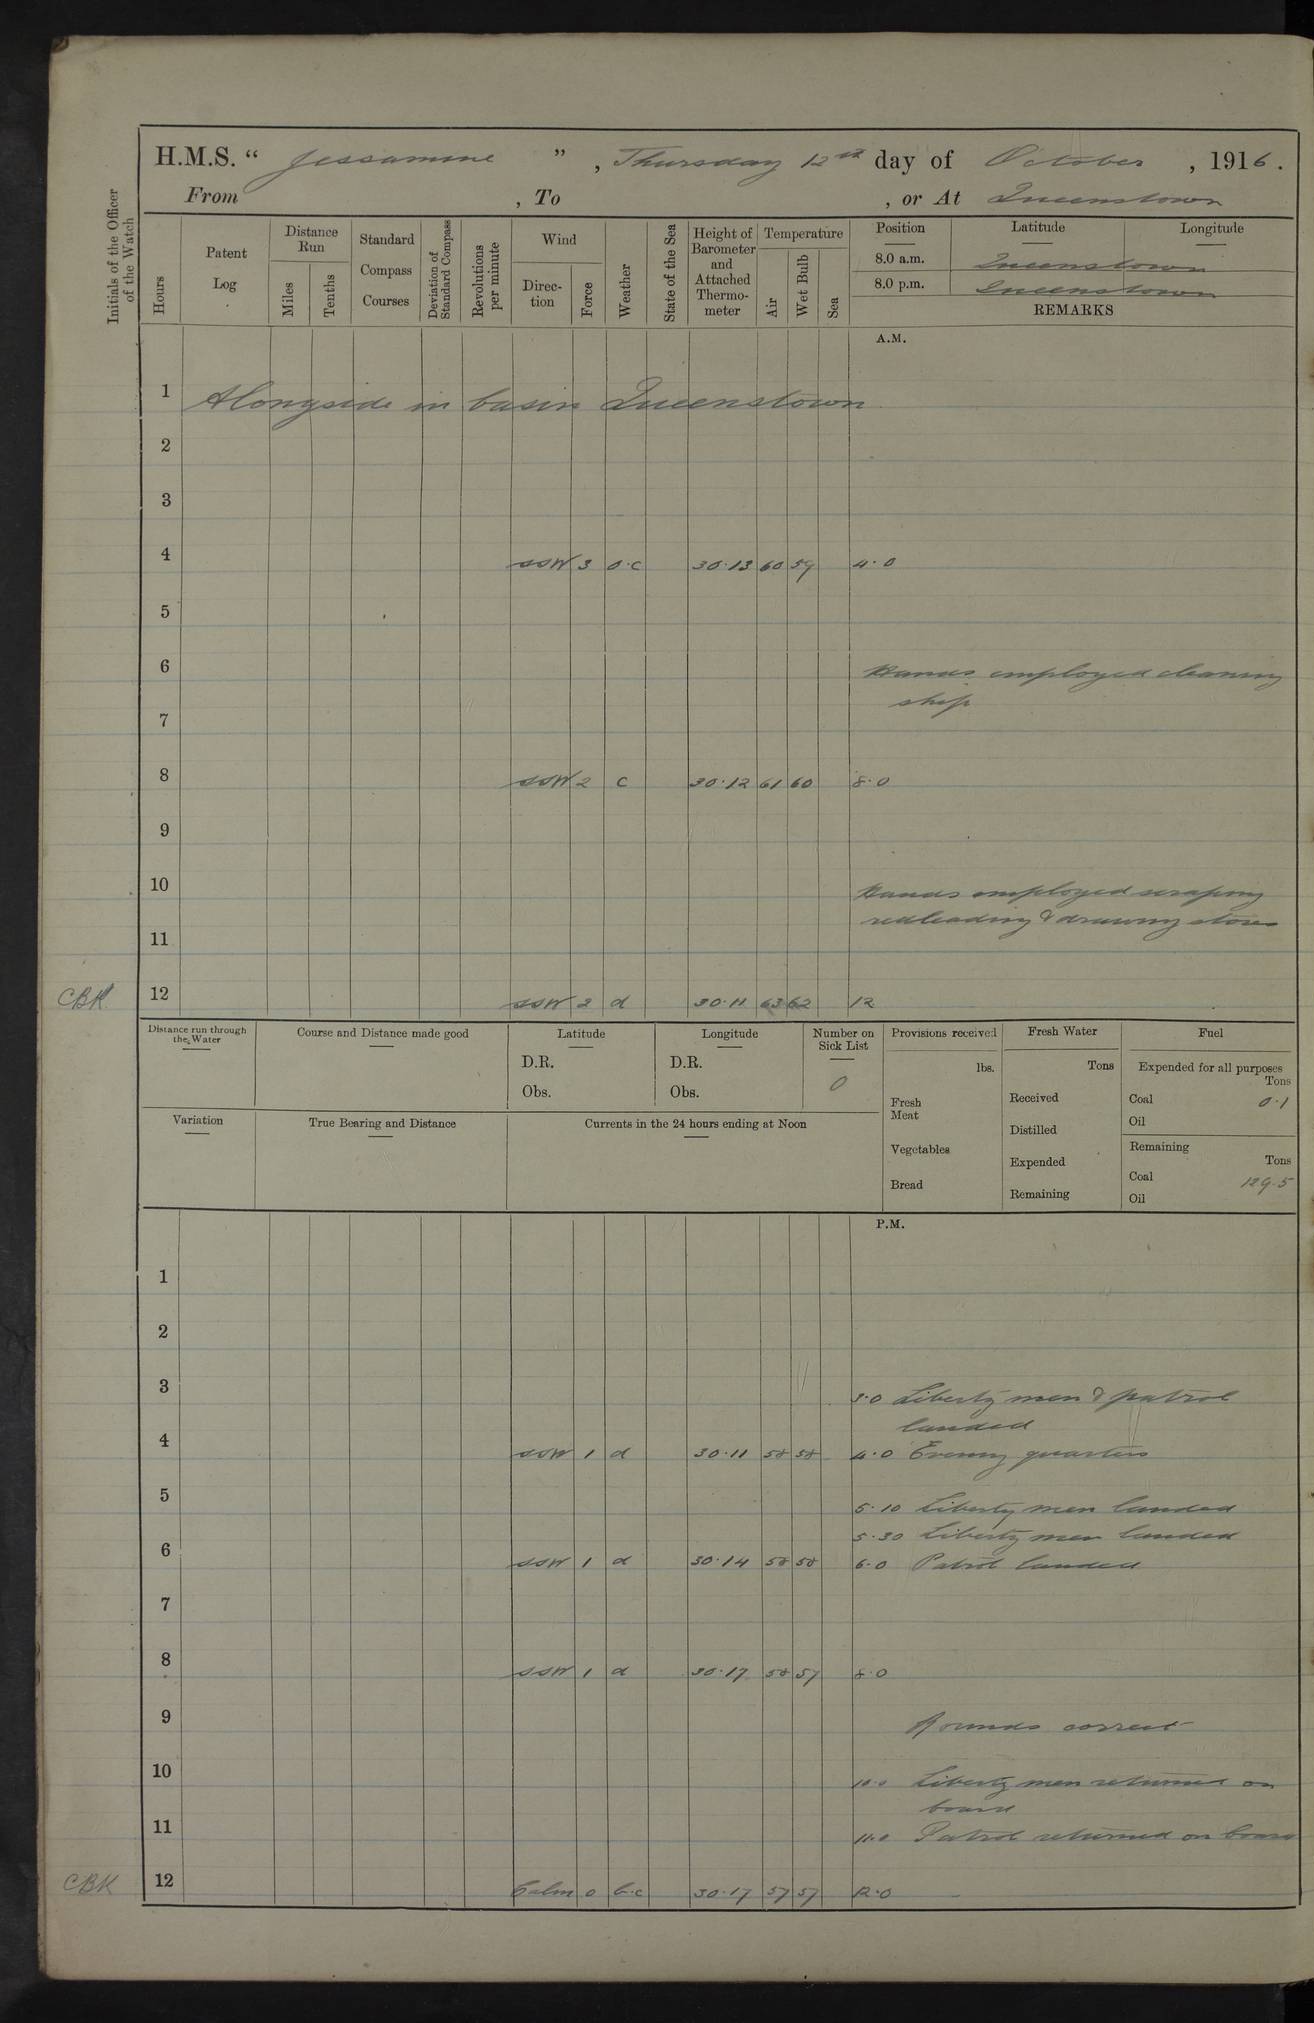 H.M.S. “ Jessamine ” , Thursday 12th day of October , 1916 .
From , To , or At Queenstown
Initials of the Officer of the Watch
Hours
Patent Log
Distance Run
Miles
Tenths
Standard Compass Courses
Deviation of Standard Compass
Revolutions per minute
Wind
Direc-tion
Force
Weather
State of the Sea
Height of Barometer and Attached Thermo-meter
Temperature
Air
Wet Bulb
Sea
Position Latitude Longitude
8.0 a.m. Queenstown
8.0 p.m. Queenstown
REMARKS
A.M.
1 Alongside in basin Queenstown
2
3
4 SSW 3 o.c 30.13 60 59 4.0
5
6 Hands employed cleaning
ship
7
8 SSW 2 c 30.12 61 60 8.0
9
10 Hands employed scraping
redleading & drawing stores
11
CBK 12 SSW 2 d 30.11 63 62 12
Distance run through the Water
Course and Distance made good
Latitude
D.R.
Obs.
Longitude
D.R.
Obs.
Number on Sick List
0
Provisions received
lbs.
Fresh Meat
Vegetables
Bread
Fresh Water
Tons
Received
Distilled
Expended
Remaining
Fuel
Expended for all purposes
Tons
Coal 0.1
Oil
Remaining
Tons
Coal 129.5
Oil
Variation
True Bearing and Distance
Currents in the 24 hours ending at Noon
P.M.
1
2
3 3.0 Liberty men & patrol
landed
4 SSW 1 d 30.11 58 58 4.0 Evening quarters
5 5.10 Liberty men landed
5.30 Liberty men landed
6 SSW 1 d 30.14 58 58 6.0 Patrol landed
7
8 SSW 1 d 30.17 58 57 8.0
9 Rounds correct
10 10.0 Liberty men returned on
board
11 11.0 Patrol returned on board
CBK 12 Calm 0 b.c 30.17 57 57 12.0